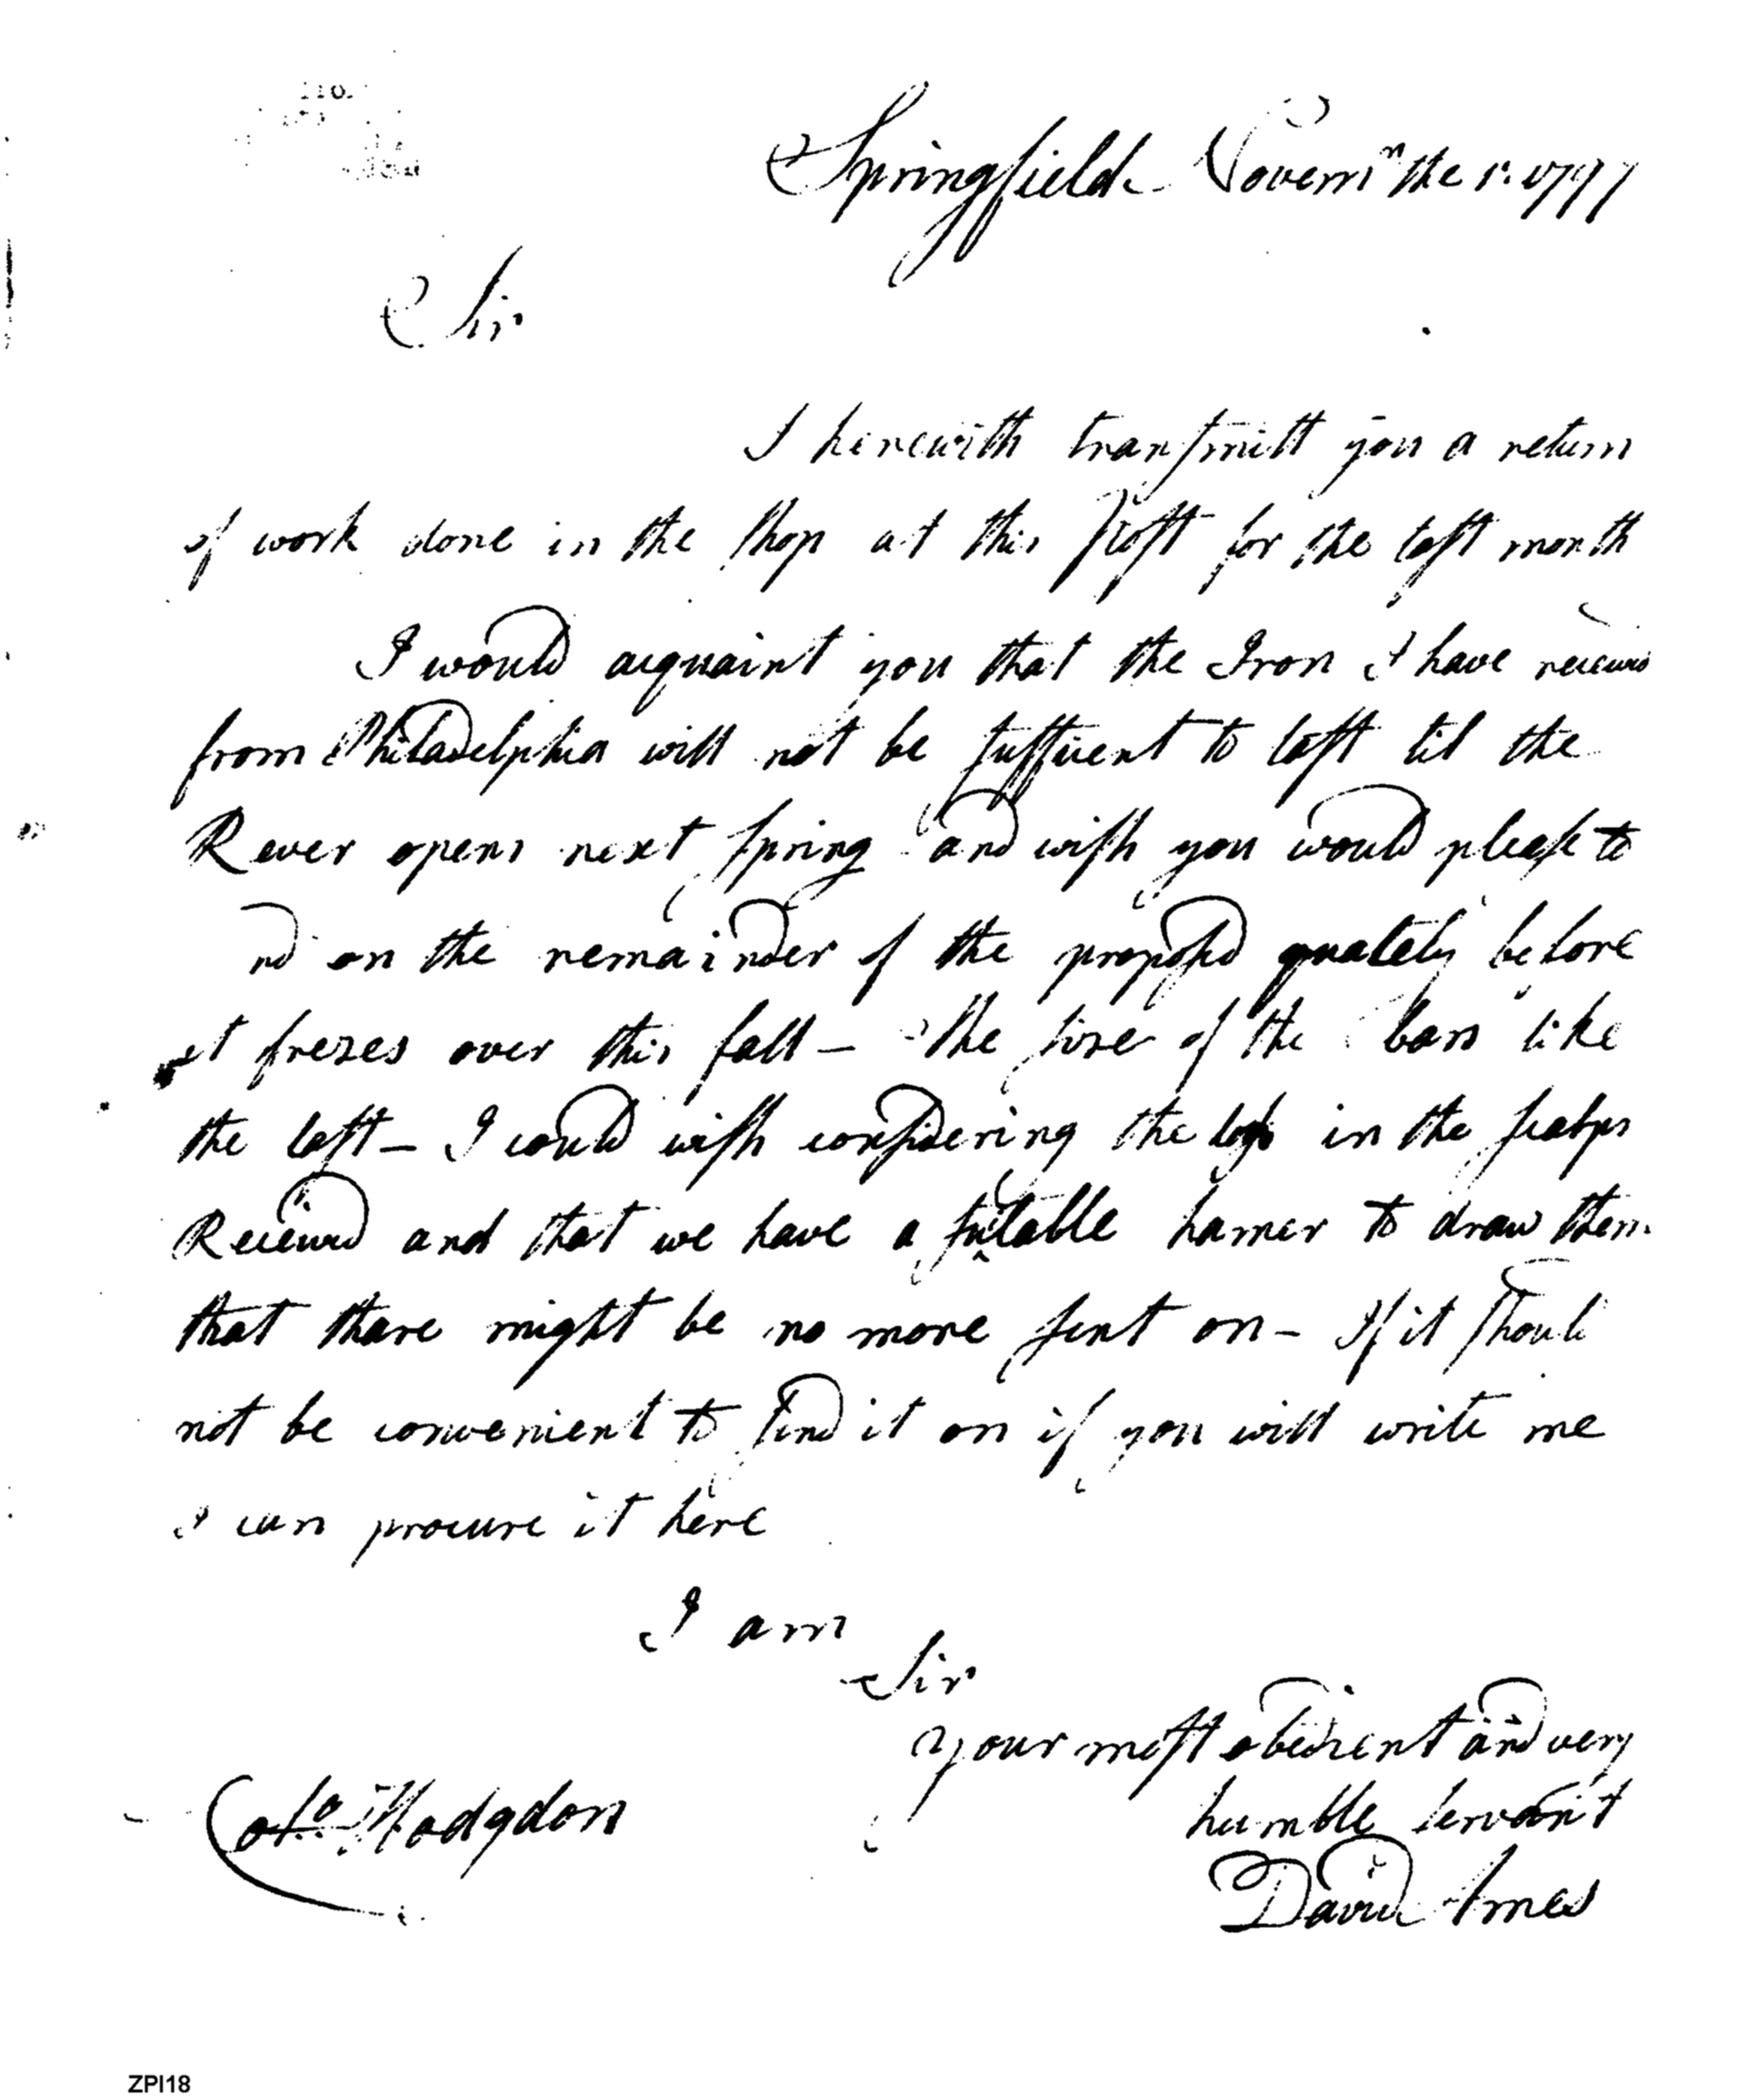 Springfield Novem the 1. 1797
Sir
I herewith transmitt you a return
of work done in the shop at this Post for the last month
I would acquaint you that the Iron I have received
from Philadelphia will not be suffucent to last til the
River opens next spring and wish you would please to
nd on the remainder of the proposed quatety before
it frezes over this fall — The sise of the bars like
the last — I could wish considering the loss in the scalps
Received and that we have a sutable hamer to draw them
that thare might be no more sent on — If it should
not be convenient to send it on if you will write me
I can procure it here
I am
Sir
your most obedient and very
humble servant
Colo. Hodgdon
David Ames
ZPI18